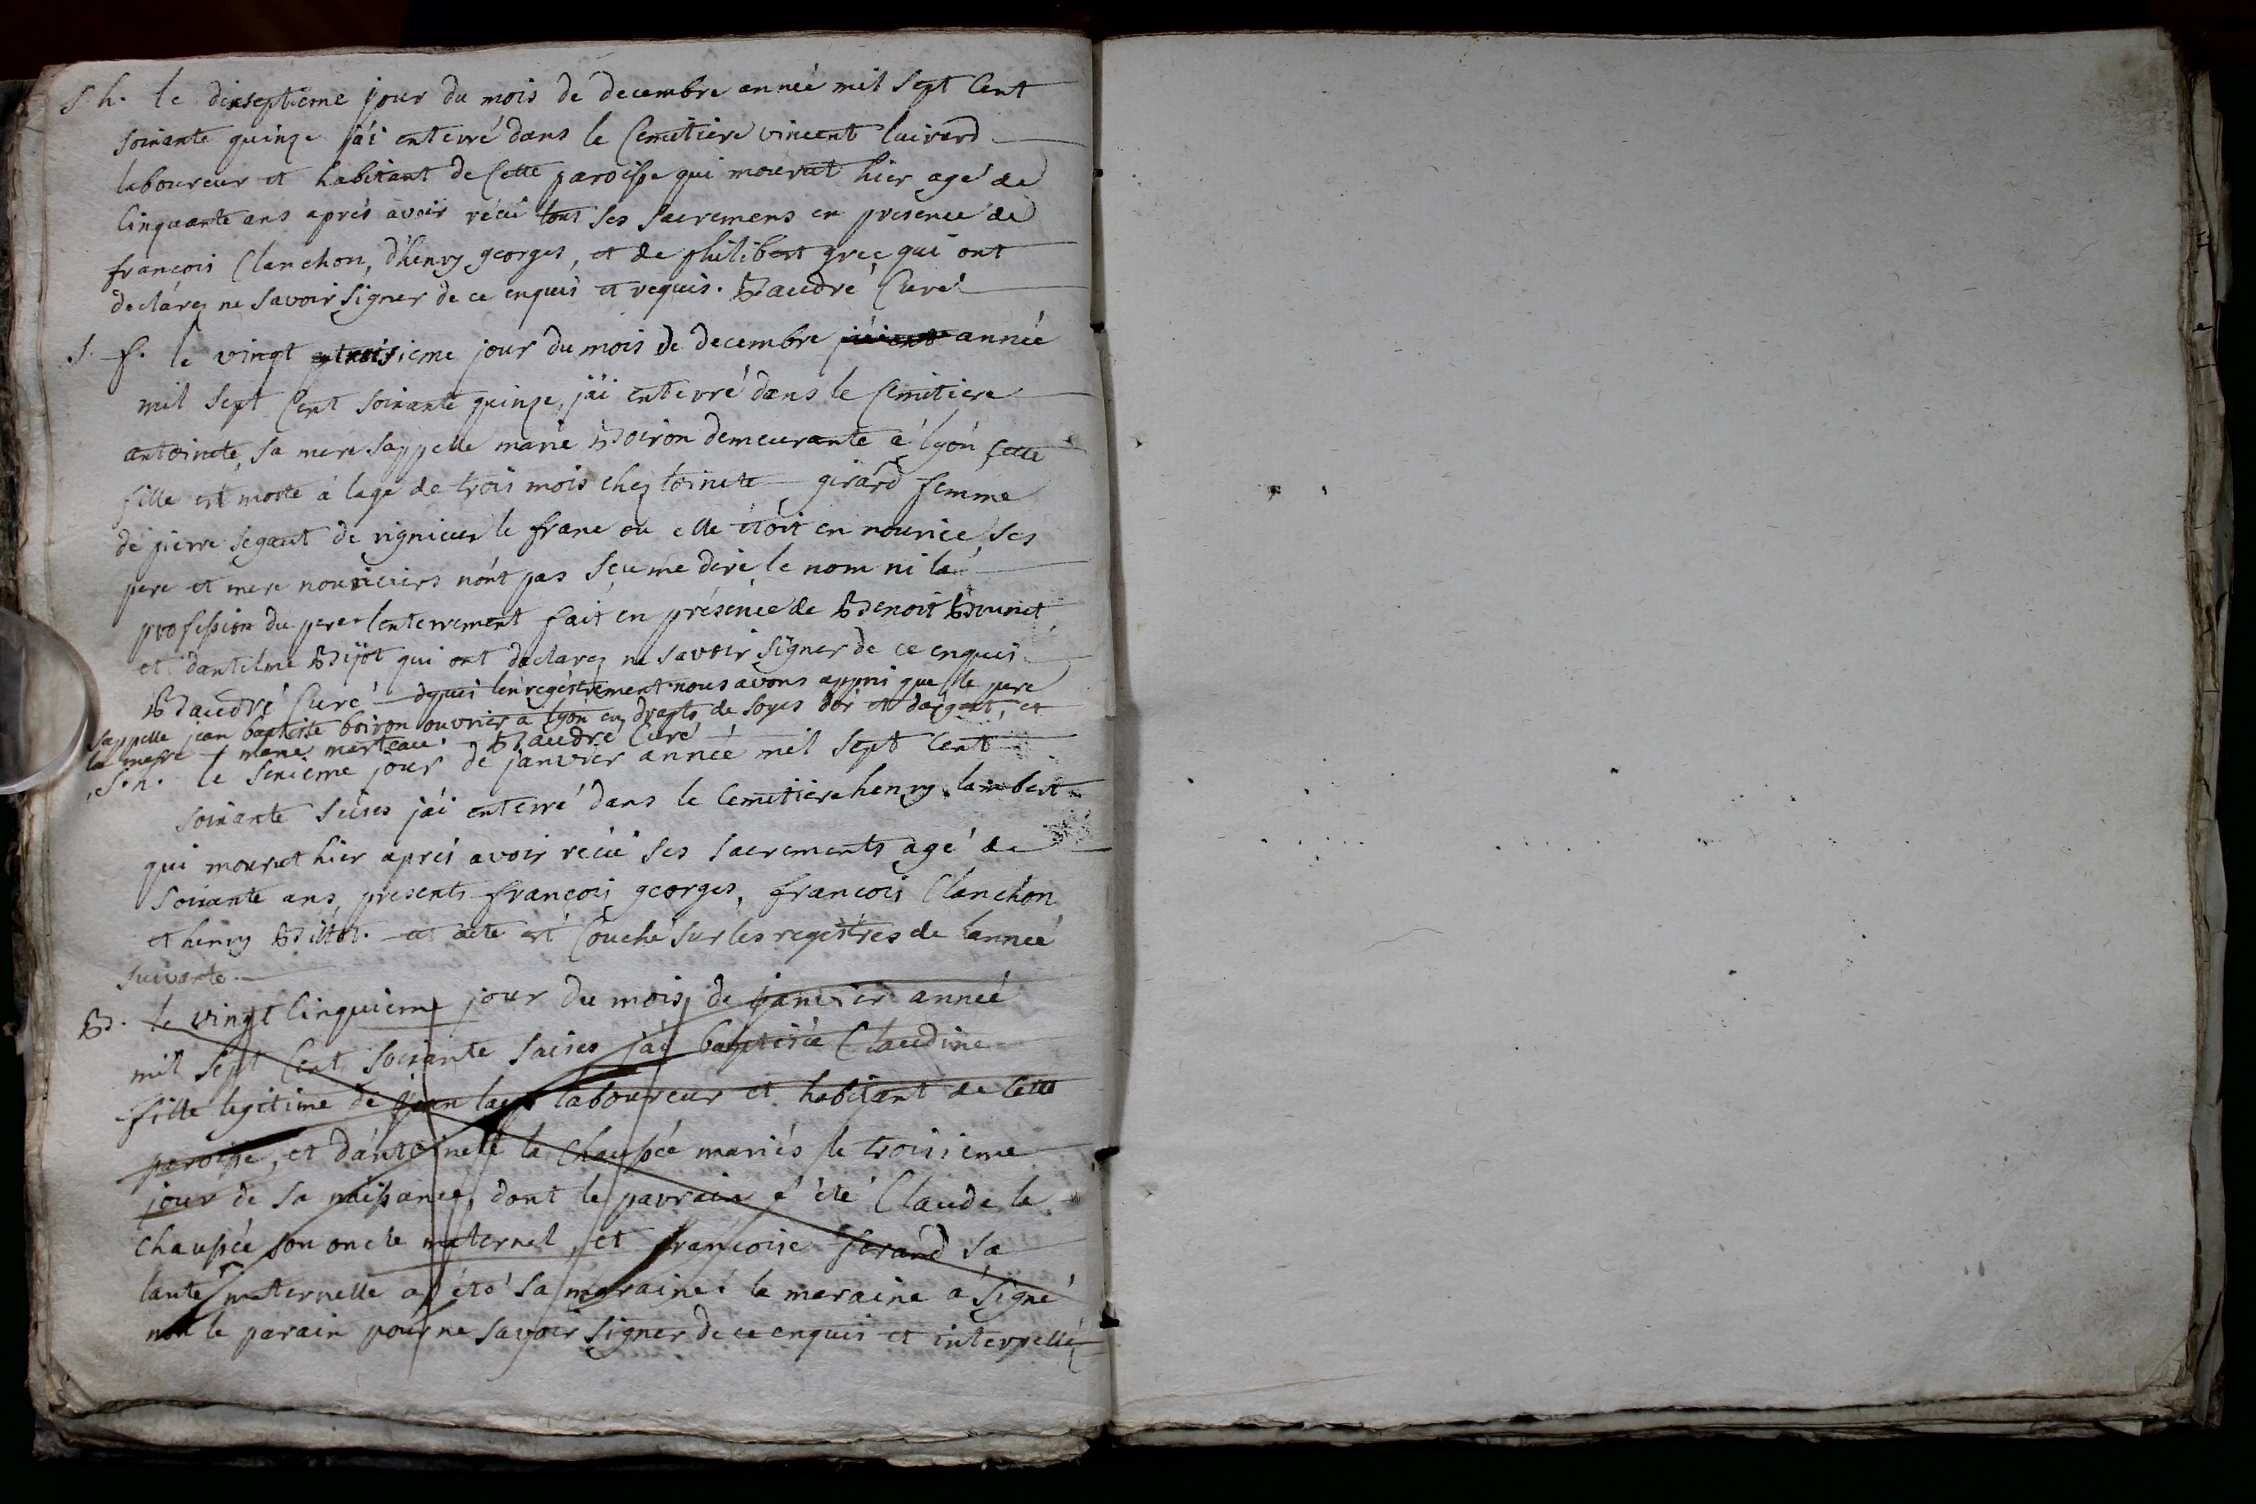 S. h. le dixseptieme jour du mois de decembre année mil sept Cent
soixante quinze j'ai enterré dans le Cemetiere vincent luivard
laboureur et habitant de Cette paroisse qui mourut hier agé de
Cinquante ans aprés avoir récu tous ses sacremens en presence de
francois Clanchon, d'henry georges, et de philibert grec qui ont
declarez ne savoir signer de ce enquis et requis. Baudré Curé
S. f. le vingt troisieme jour du mois de decembre année
mil sept Cent soixante quinze, j'ai enterré dans le Cemitiere
antoinete, sa mere sappelle marie Boiron demeurante a lyon cette
fille est morte à lage de trois mois chez toinete girard femme
de pierre segaut de rignieux le franc ou elle etoit en nourice, ses
pere et mere nouriciers nont pas sçu me dire le nom ni la
profession du pere lenterrement fait en présence de Benoit Brunet
et dantelme Bijot qui ont declarez ne savoir signer de ce enquis
Baudré Curé dpuis lenregistrement nous avons appris que le pere
sappelle jean baptiste boiron ouvrier a lyon en drapts de soyes dor et dargent, et
la mere marie marteau. Baudré Curé
S. h. le seixieme jour de janvier année mil sept Cent
soixante seises j'ai enterré dans le Cemetiere henry lambert
qui mourut hier aprés avoir récu ses sacrements agé de
soixante ans, presents francois georges, francois Clanchon
et henry Billot. cet acte est Couché sur les registres de lannée
suivante.
B. le vingt Cinquieme jour du mois de janvier année
mil sept Cent soixante saises j'ai baptisée Claudine
fille legitime de jean laboureur et habitant de Cette
paroisse, et dantoinete la Chaussée mariés le troisieme
jour de sa naissance, dont le parrain a été Claude la
Chaussée son oncle maternel, et françoise ferand sa
tante maternelle a été sa maraine: la maraine a signé
non le parain pour ne savoir signer de ce enquis et interpellé